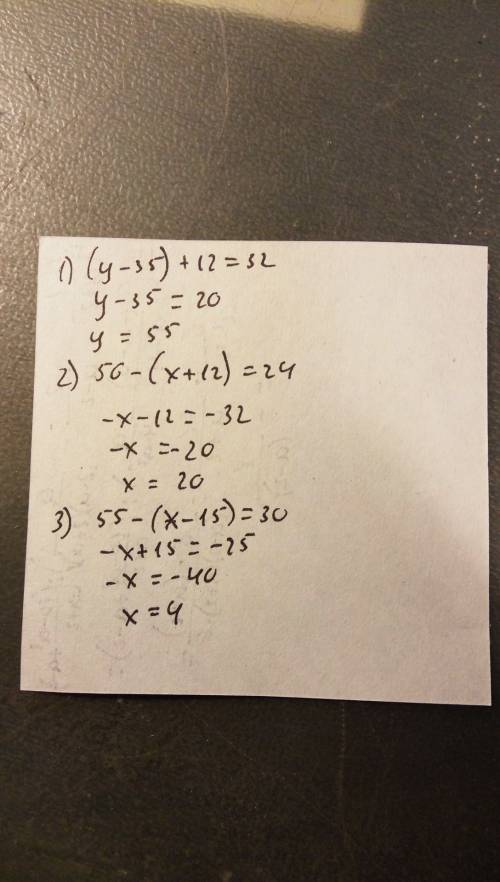 1) (y-35)+12=32
y-35=20
y=55
2) 56-(x+12)=24
-x-12=-32
-x=-20
x=20
3) 55-(x-15)=30
-x+15=-25
-x=-40
x=4